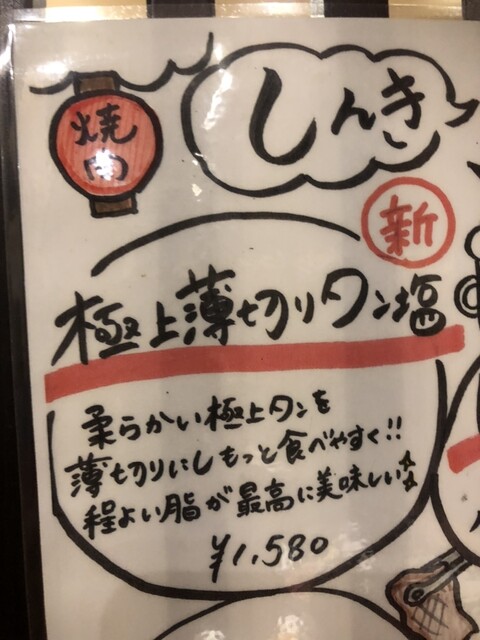 焼肉
しんき
新
極上薄切りタン塩
柔らかい極上タンを
薄切りにしもっと食べやすく!!
程よい脂が最高に美味しい☆
¥1,580